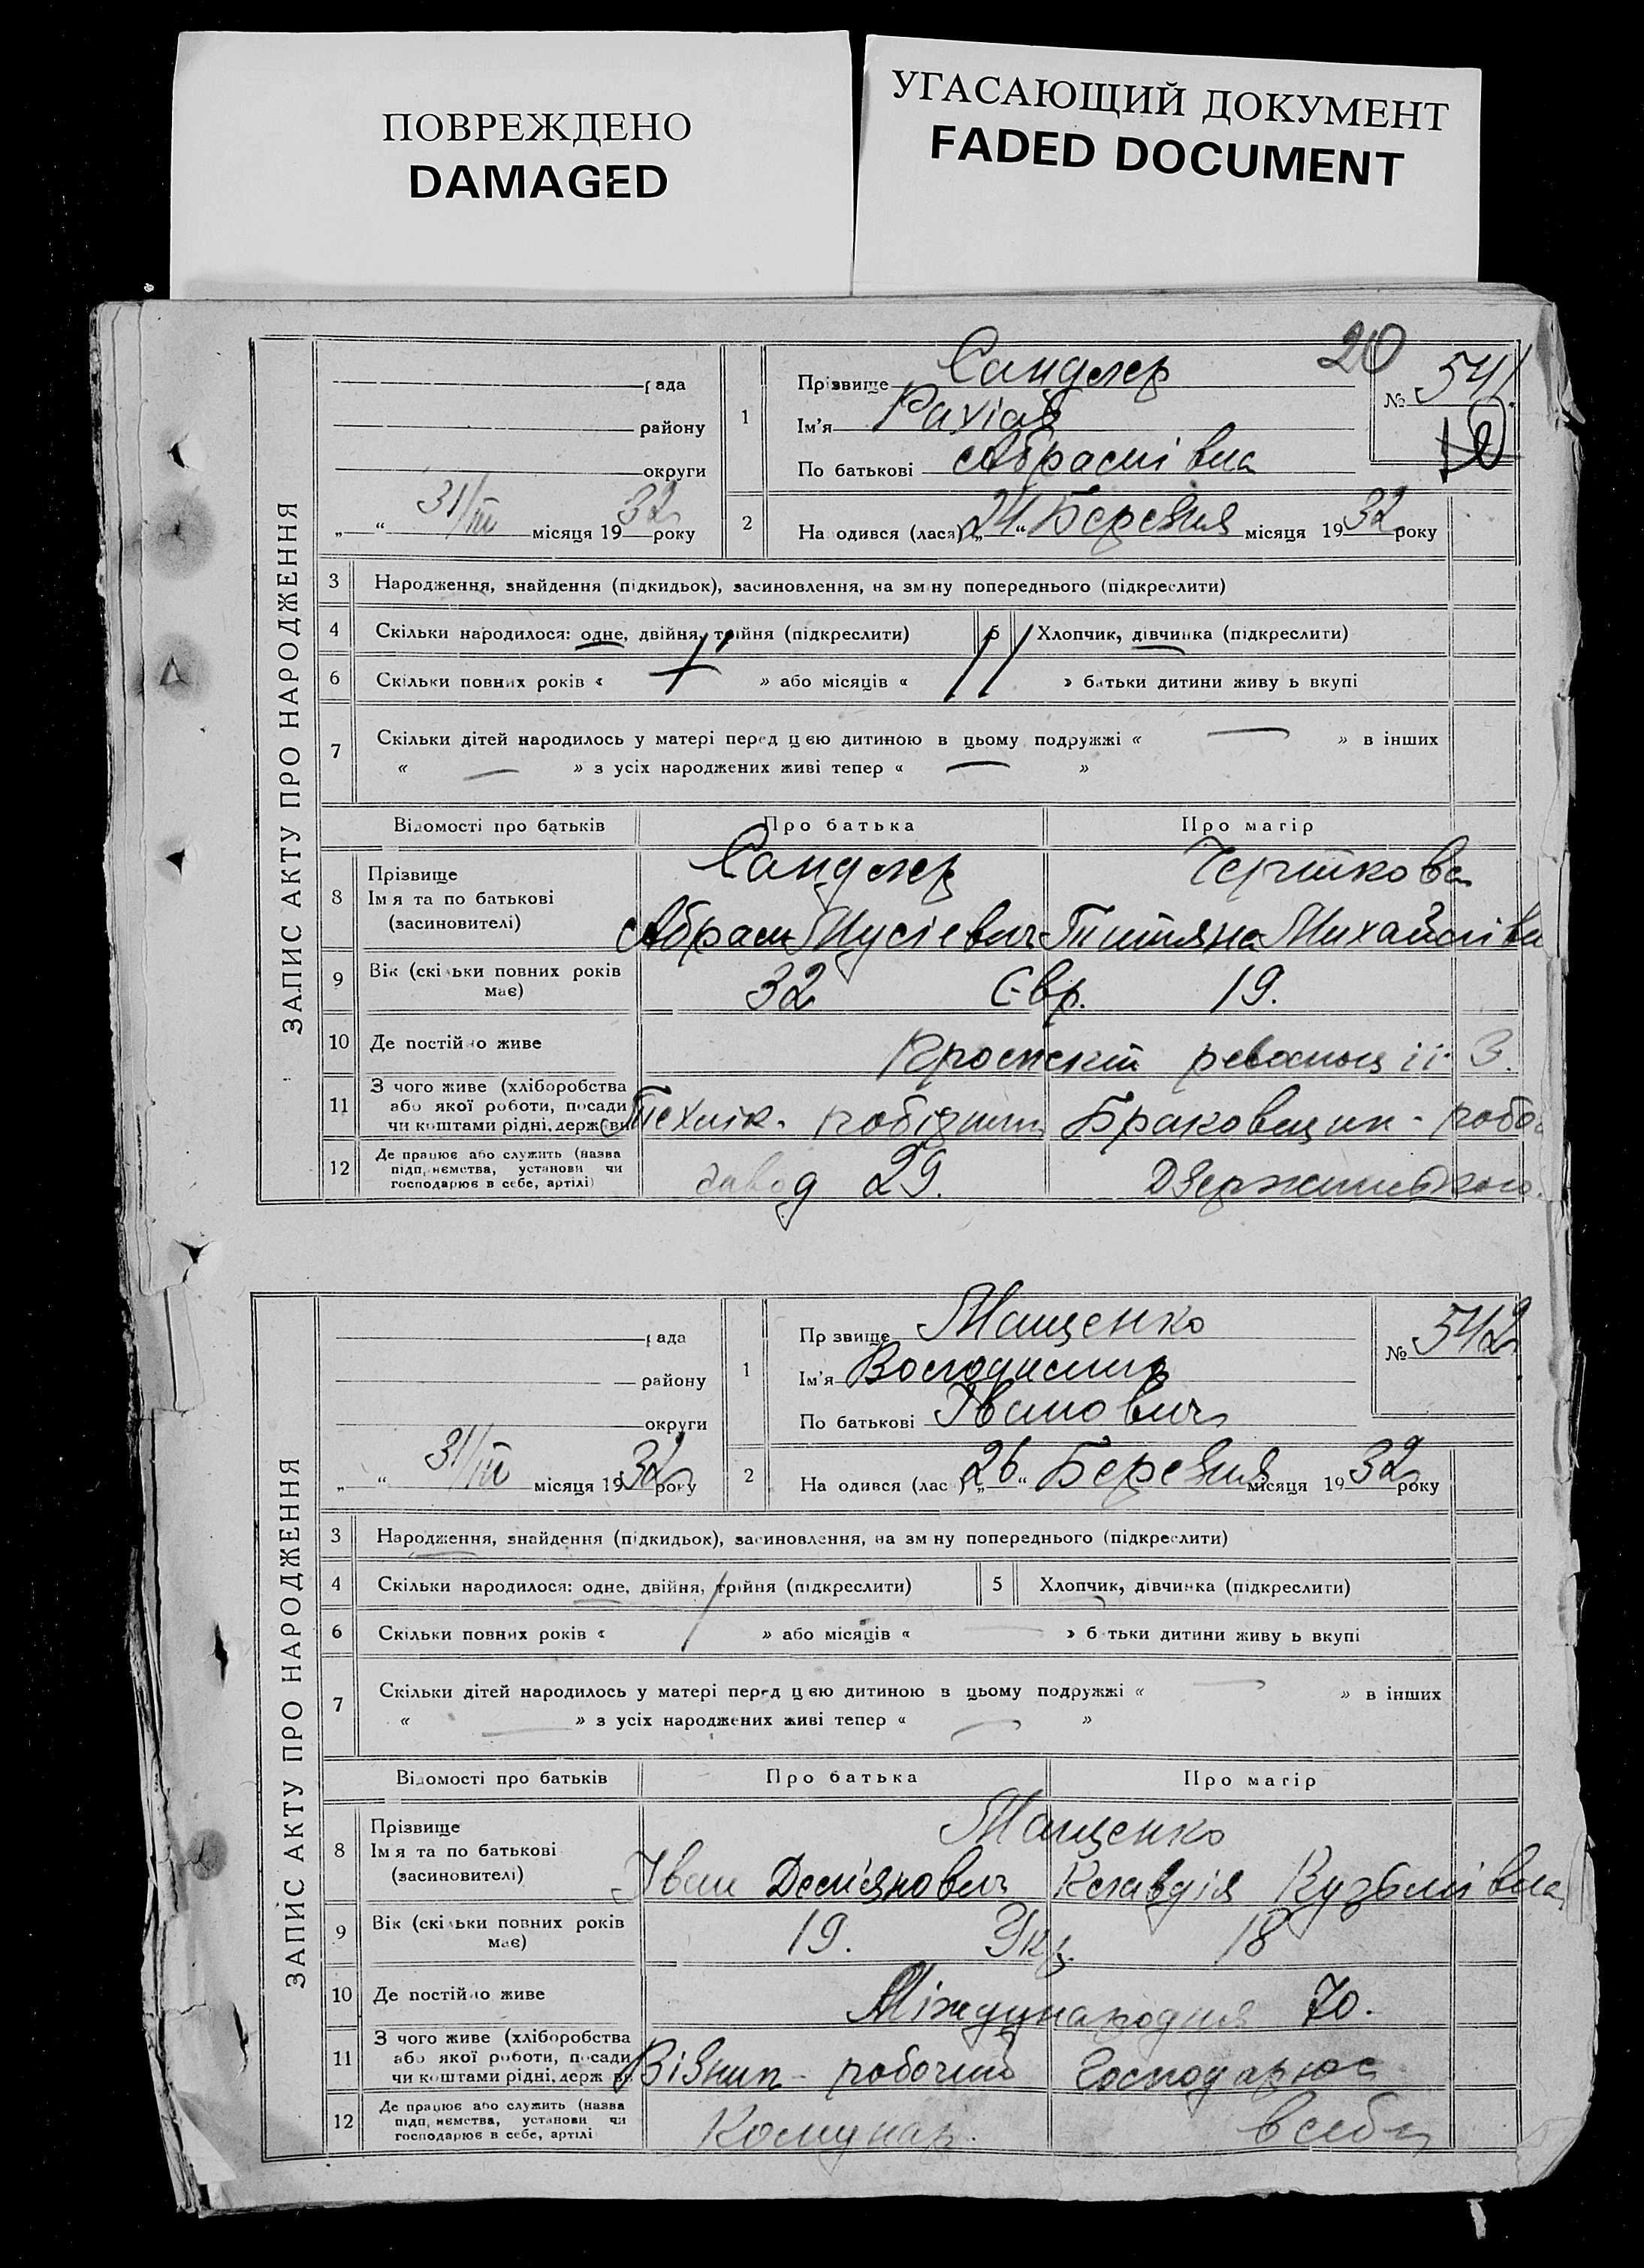 ПОВРЕЖДЕНО
DAMAGED
УГАСАЮЩИЙ ДОКУМЕНТ
FADED DOCUMENT
20
ЗАПИС АКТУ ПРО НАРОДЖЕННЯ
рада
району
округи
„ “ 31/III місяця 1932 року
1
Прізвище Сандлер
Ім'я
По батькові Абрамівна
№ 541
2
На одився (лася) „24“ Березня місяця 1932 року
3 Народження, знайдення (підкидьок), засиновлення, на зм ну попереднього (підкреслити)
4 Скільки народилося: одне, двійня, трійня (підкреслити) 5 Хлопчик, дівчинка (підкреслити)
6 Скільки повних років « » або місяців « » батьки дитини живу ь вкупі
7 Скільки дітей народилось у матері перед цею дитиною в цьому подружжі « — » в інших
« — » з усіх народжених живі тепер « — »
Відомості про батьків Про батька Про матір
8 Прізвище
Ім я та по батькові
(засиновителі)
Сандлер Черткова
Абрам Мусієвич Титяна Михайлівн
9 Вік (скі ьки повних років має) 32 Євр. 19.
10 Де постійно живе Проспект революції 3.
11 З чого живе (хліборобства
або якої роботи, посади
чи коштами рідні, держави
Технік. робітник Браковщик - робо
12 Де працює або служить (назва
підп, нємства, установи чи
господарює в себе, артілі)
завод 29. Дзержинського.
ЗАПИС АКТУ ПРО НАРОДЖЕННЯ
рада
району
округи
„ “ 31/III місяця 1932 року
1
Пр звище Мащенко
Ім'я Володимир
По батькові Іванович
№ 542
2
На одився (лас ) „26“ Березня місяця 1932 року
3 Народження, знайдення (підкидьок), засиновлення, на зм ну попереднього (підкреслити)
4 Скільки народилося: одне, двійня, трійня (підкреслити) 5 Хлопчик, дівчинка (підкреслити)
6 Скільки повних років « » або місяців « — » б тьки дитини живу ь вкупі
7 Скільки дітей народилось у матері перед цею дитиною в цьому подружжі « — » в інших
« — » з усіх народжених живі тепер « — »
Відомості про батьків Про батька Про матір
8 Прізвище
Ім я та по батькові
(засиновителі)
Мащенко
Іван Дем'янович Клавдія Кузьмівна
9 Вік (скі ьки повних років має) 19. Укр. 18
10 Де постійно живе Міжднародня 70.
11 З чого живе (хліборобства
або якої роботи, посади
чи коштами рідні, держ ви
Візник - робочий Господарює
12 Де працює або служить (назва
підп, нємства, установи чи
господарює в себе, артілі
Комунар. в себе